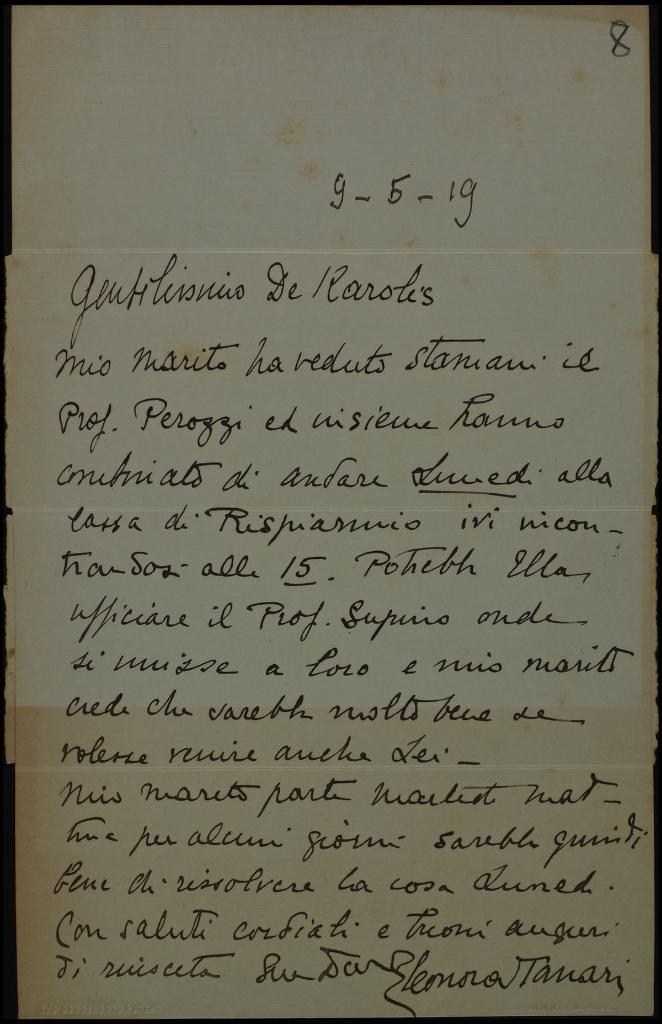 8
9-5-19
Gentilissimo De Karolis
mio marito ha veduto stamani il
Prof. Perozzi ed insieme hanno
combinato di andare Lunedi alla
Cassa di Risparmio ivi incon-
trandosi alle 15. Potrebbe Ella
ufficiare il Prof. Supino onde
si unisse a loro e mio marito
crede che sarebbe molto bene se
volesse venire anche Lei -
Mio marito parte martedi mat-
tina per alcuni giorni sarebbe quindi
bene di rissolvere la cosa Lunedi.
Con saluti cordiali e buoni auguri
di riuscita Sua Dev Eleonora Tanari